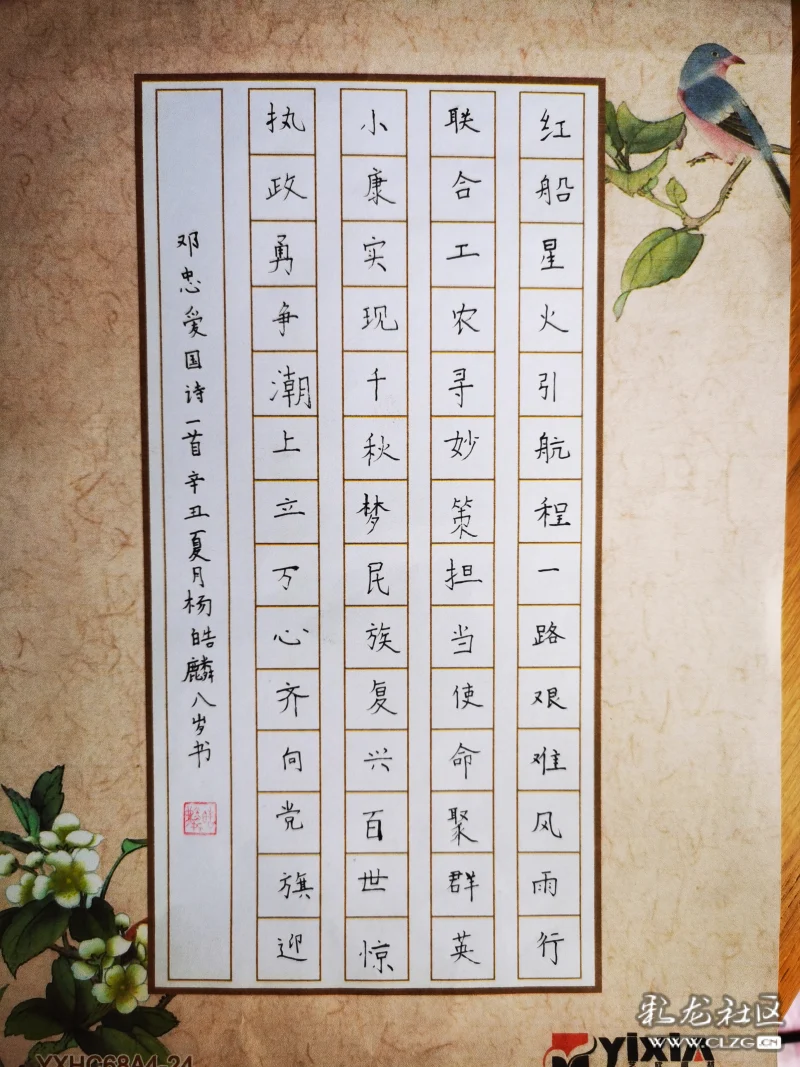 红船星火引航程一路艰难风雨行
联合工农寻妙策担当使命聚群英
小康实现千秋梦民族复兴百世惊
执政勇争潮上立万心齐向党旗迎
邓忠爱国诗一首辛丑夏月杨皓麟八岁书
YXHG68A4-24
YIXIN
彩龙社区
www.CLZG.CN